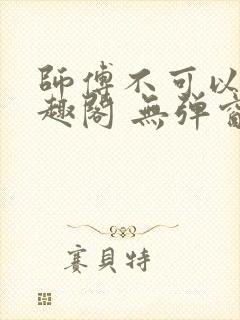 師傅不可以
趣閣 無彈窗
賽貝特